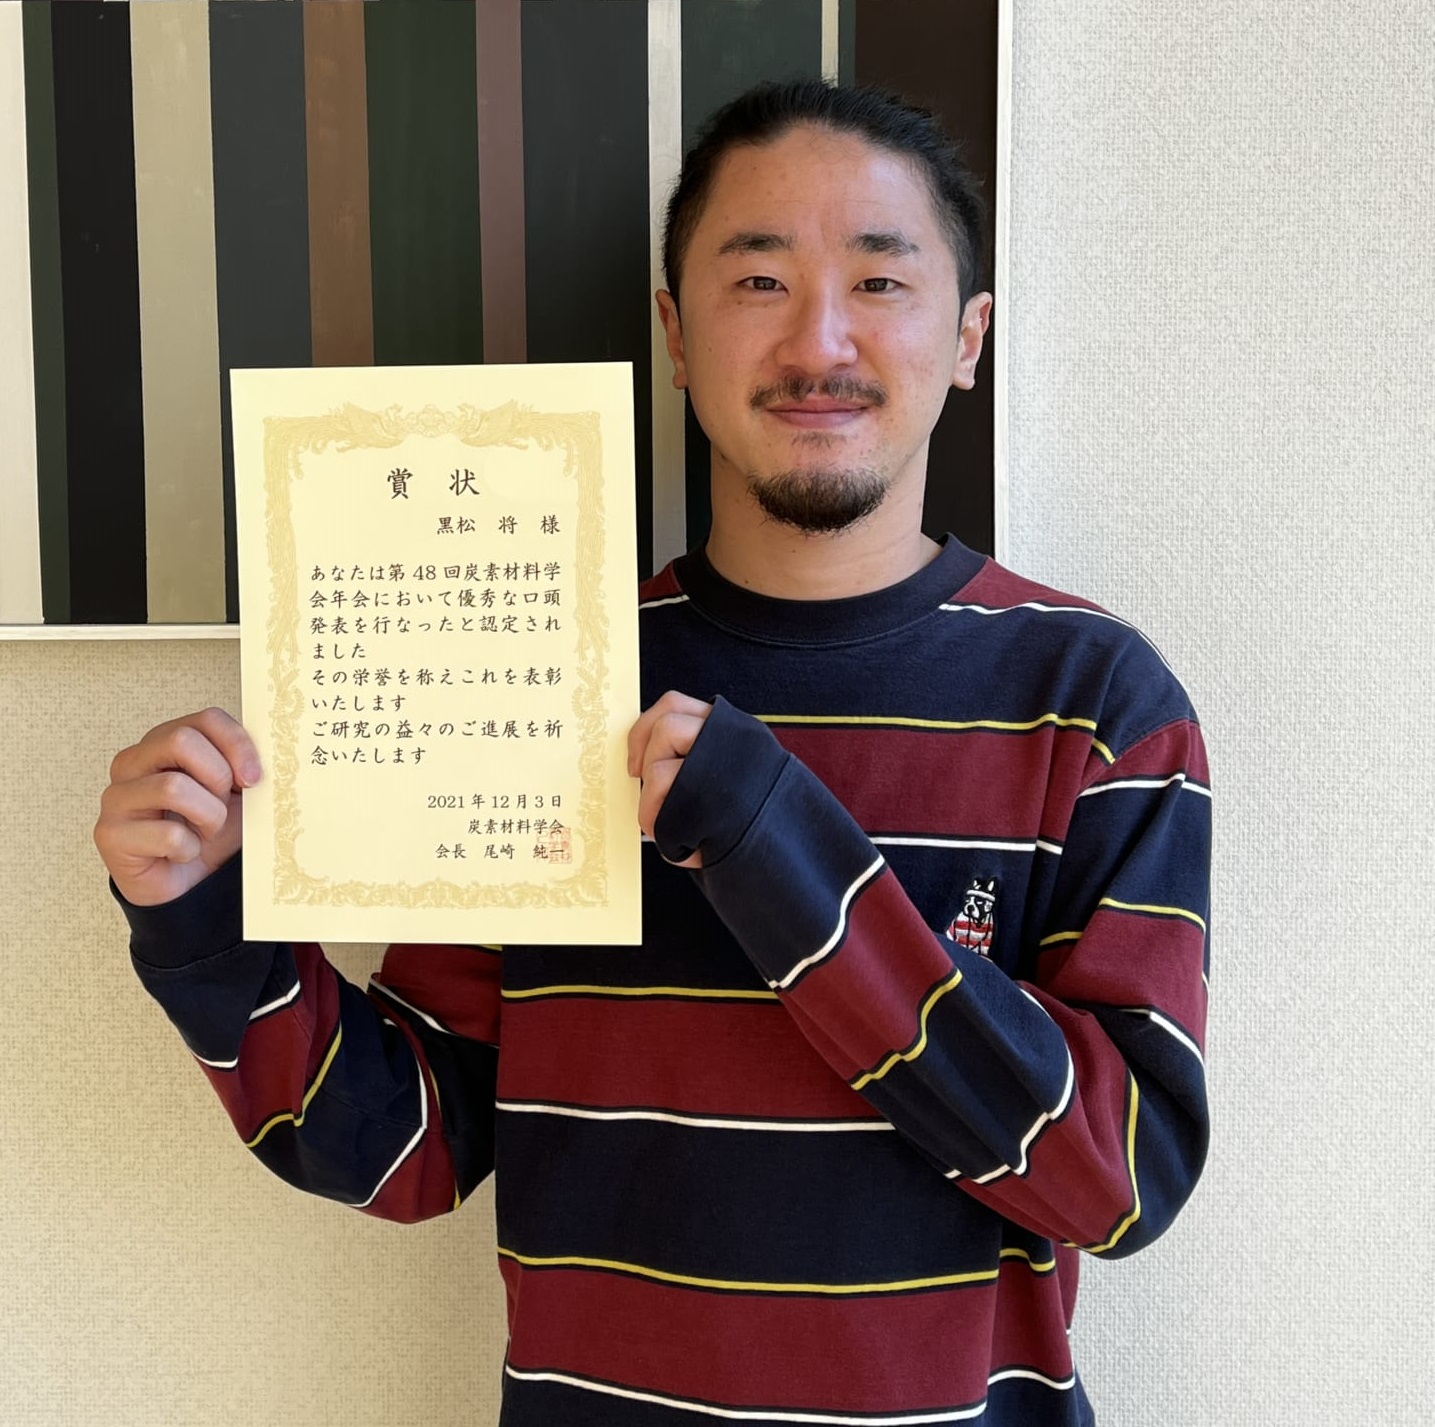 賞 状
黒松 将 様
あなたは第 48 回炭素材料学
会年会において優秀な口頭
発表を行なったと認定され
ました
その栄誉を称えこれを表彰
いたします
ご研究の益々のご進展を祈
念いたします
2021 年 12 月 3 日
炭素材料学会
会長 尾崎 純一